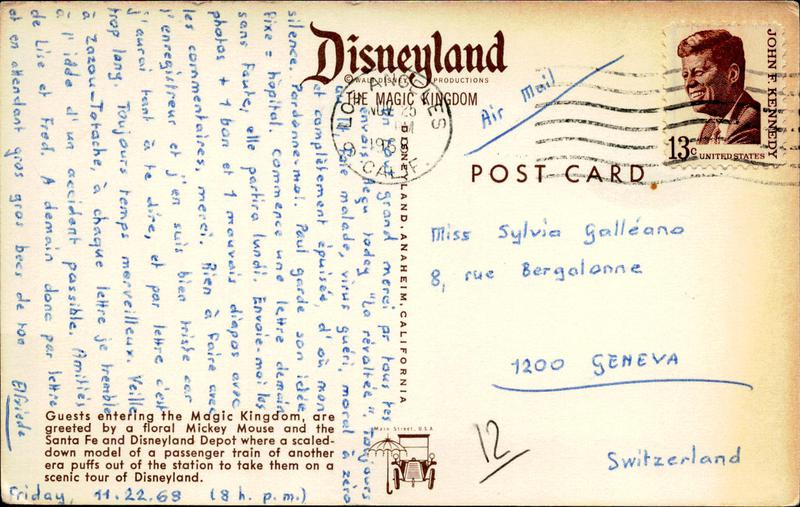 Disneyland
© WALT DISNEY PRODUCTIONS
THE MAGIC KINGDOM
DISNEYLAND, ANAHEIM, CALIFORNIA
LOS ANGELES
NOV 25
PM
CALIF
Air Mail
JOHN F. KENNEDY
13c UNITED STATES
POST CARD
Miss Sylvia Galléano
8, rue Bergalonne
1200 GENEVA
Switzerland
12
Main Street, U.S.A.
Friday, 11.22.68 (8 h. p.m.)
grand merci pr tous tes
envois. Reçu today "La révoltée". Toujours
malade, virus guéri, moral à zéro
et complètement épuisée, d'où mon
silence. Pardonne-moi. Paul garde son idée
fixe = hôpital. Commence une lettre demain
sans faute, elle partira lundi. Envoie-moi les
photos + 1 bon et 1 mauvais diapos avec
les commentaires, merci. Rien à faire avec
l'enregistreur et j'en suis bien triste car
j'aurai tant à te dire, et par lettre c'est
trop long. Toujours temps merveilleux. Veille
à Zazou-Totoche, à chaque lettre je tremble
à l'idée d'un accident possible. Amitiés
de Lise et Fred. A demain donc par lettre
et en attendant gros gros becs de ton Elfriede
Guests entering the Magic Kingdom, are
greeted by a floral Mickey Mouse and the
Santa Fe and Disneyland Depot where a scaled-
down model of a passenger train of another
era puffs out of the station to take them on a
scenic tour of Disneyland.